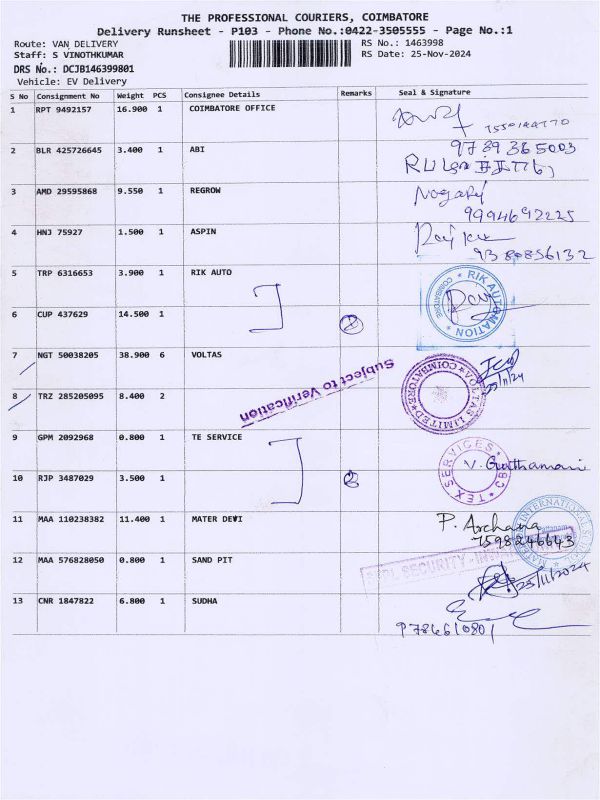 THE PROFESSIONAL COURIERS, COIMBATORE
Delivery Runsheet - P103 - Phone No.:0422-3505555 - Page No.:1
Route: VAN DELIVERY RS No.: 1463998
Staff: S VINOTHKUMAR RS Date: 25-Nov-2024
DRS No.: DCJB146399801
Vehicle: EV Delivery
S No Consignment No Weight PCS Consignee Details Remarks Seal & Signature
1 RPT 9492157 16.900 1 COIMBATORE OFFICE
2 BLR 425726645 3.400 1 ABI 9789365003
3 AMD 29595868 9.550 1 REGROW
9994692225
4 HNJ 75927 1.500 1 ASPIN
9380856132
5 TRP 6316653 3.900 1 RIK AUTO RIK AUTOMATION COIMBATORE
6 CUP 437629 14.500 1 2
7 NGT 50038205 38.900 6 VOLTAS
Subject to Verification
VOLTAS LIMITED COIMBATORE
8 TRZ 285205095 8.400 2
9 GPM 2092968 0.800 1 TE SERVICE TEX SERVICES CBE
10 RJP 3487029 3.500 1 2
11 MAA 110238382 11.400 1 MATER DEVI P. Archana
7598246643
INTERNATIONAL
12 MAA 576828050 0.800 1 SAND PIT SECURITY
25/11/2024
13 CNR 1847822 6.800 1 SUDHA
9786610801